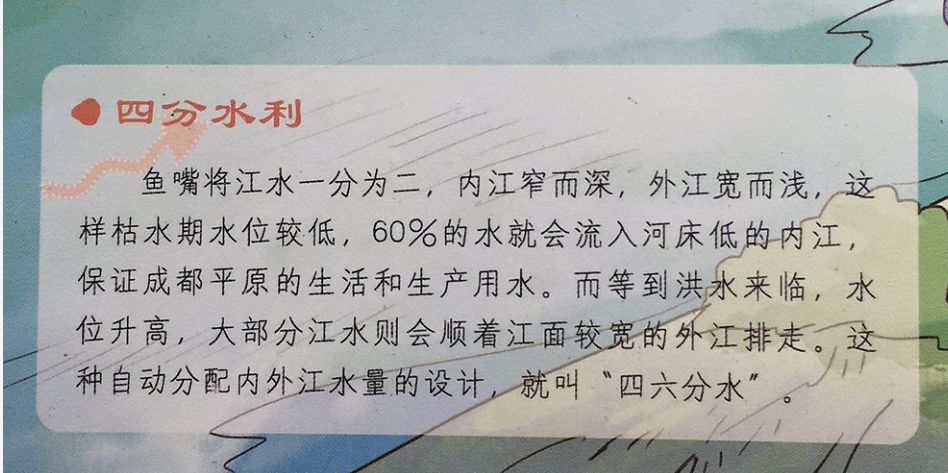 四分水利
鱼嘴将江水一分为二，内江窄而深，外江宽而浅，这
样枯水期水位较低，60%的水就会流入河床低的内江，
保证成都平原的生活和生产用水。而等到洪水来临，水
位升高，大部分江水则会顺着江面较宽的外江排走。这
种自动分配内外江水量的设计，就叫“四六分水”。